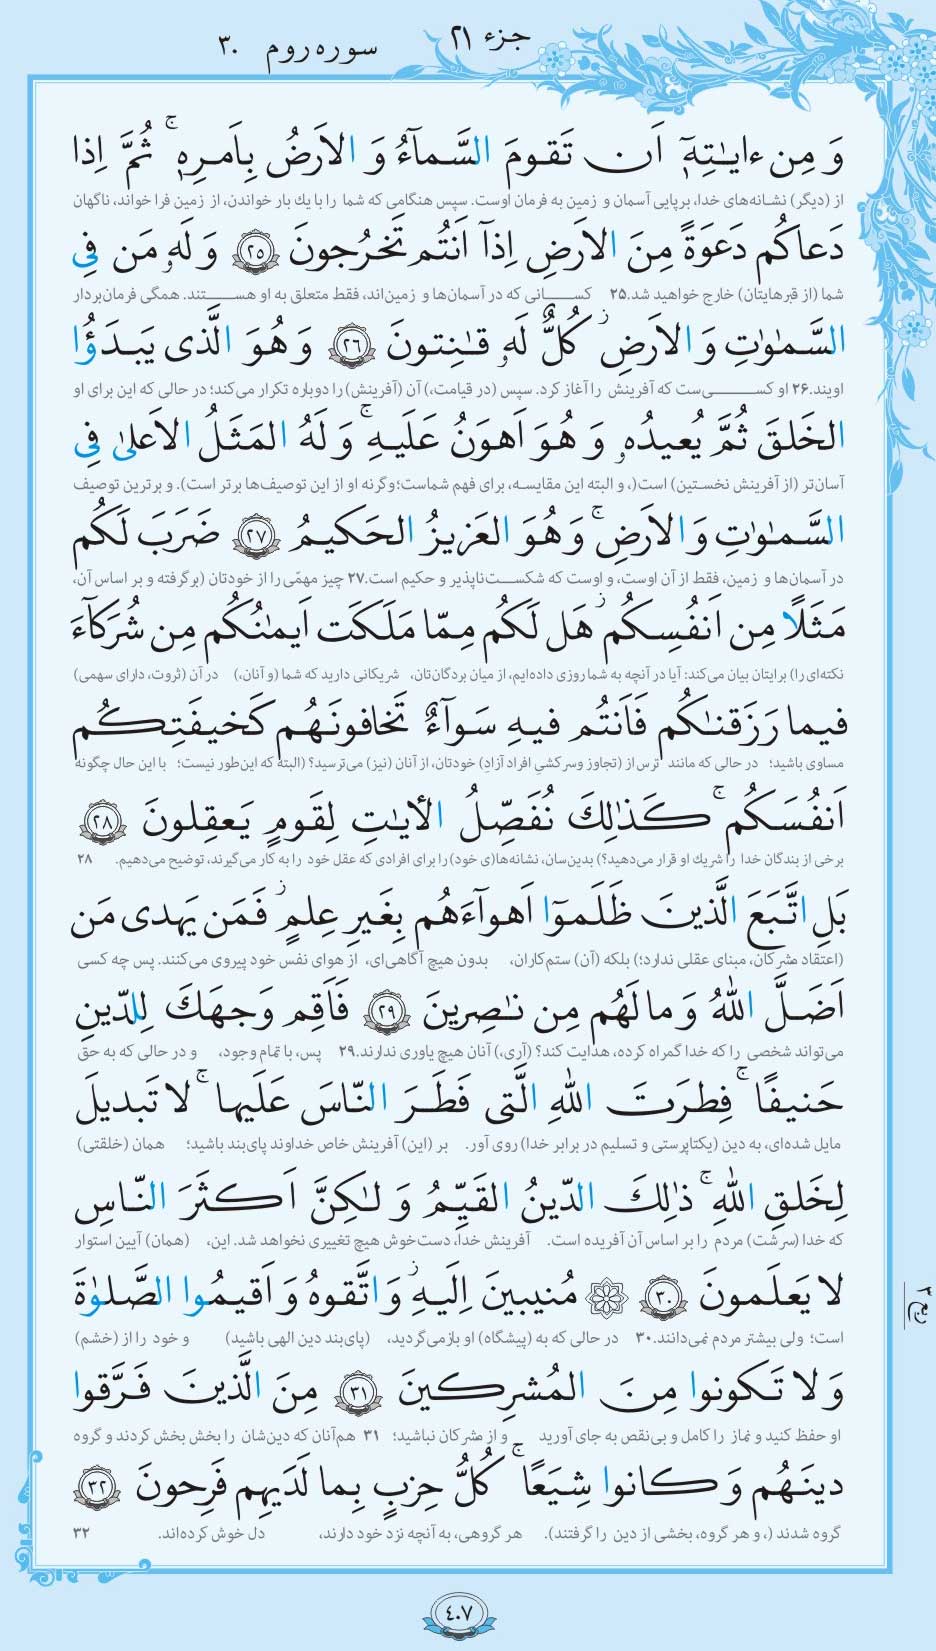 جزء ۲۱
سوره روم ۳۰
وَ مِن ءایـٰتِهٖٓ اَن تَقومَ السَّمآءُ وَ الاَرضُ بِاَمرِهٖ ۚ ثُمَّ اِذا
از (دیگر) نشانه‌های خدا، برپایی آسمان و زمین به فرمان اوست. سپس هنگامی که شما را با یك بار خواندن، از زمین فرا خواند، ناگهان
دَعاکُم دَعوَةً مِنَ الاَرضِ اِذآ اَنتُم تَخرُجونَ ۲۵ وَ لَهٗ مَن فِی
شما (از قبرهایتان) خارج خواهید شد.۲۵ کسانی که در آسمان‌ها و زمین‌اند، فقط متعلق به او هستند. همگی فرمان‌بردار
السَّمـٰوٰتِ وَ الاَرضِ ۖ کُلٌّ لَهٗ قـٰنِتونَ ۲۶ وَ هُوَ الَّذی یَبدَؤُا
اویند.۲۶ او کسی‌ست که آفرینش را آغاز کرد. سپس (در قیامت،) آن (آفرینش) را دوباره تکرار می‌کند؛ در حالی که این برای او
الخَلقَ ثُمَّ یُعیدُهٗ وَ هُوَ اَهوَنُ عَلَیهِ ۚ وَ لَهُ المَثَلُ الاَعلیٰ فِی
آسان‌تر (از آفرینش نخستین) است(، و البته این مقایسه، برای فهم شماست؛ وگرنه او از این توصیف‌ها برتر است). و برترین توصیف
السَّمـٰوٰتِ وَ الاَرضِ ۚ وَ هُوَ العَزیزُ الحَکیمُ ۲۷ ضَرَبَ لَکُم
در آسمان‌ها و زمین، فقط از آن اوست، و اوست که شکست‌ناپذیر و حکیم است.۲۷ چیز مهمّی را از خودتان (برگرفته و بر اساس آن،
مَثَلًا مِن اَنفُسِکُم ۖ هَل لَکُم مِمّا مَلَکَت اَیمـٰنُکُم مِن شُرَکآءَ
نکته‌ای را) برایتان بیان می‌کند: آیا در آنچه به شما روزی داده‌ایم، از میان بردگان‌تان، شریکانی دارید که شما (و آنان،) در آن (ثروت، دارای سهمی)
فیما رَزَقنـٰکُم فَاَنتُم فیهِ سَوآءٌ تَخافونَهُم کَخیفَتِکُم
مساوی باشید؛ در حالی که مانند ترس از (تجاوز و سرکشیِ افراد آزادِ) خودتان، از آنان (نیز) می‌ترسید؟ (البته که این‌طور نیست؛ با این حال چگونه
اَنفُسَکُم ۚ کَذٰلِكَ نُفَصِّلُ الأیـٰتِ لِقَومٍ یَعقِلونَ ۲۸
برخی از بندگان خدا را شریك او قرار می‌دهید؟) بدین‌سان، نشانه‌ها(ی خود) را برای افرادی که عقل خود را به کار می‌گیرند، توضیح می‌دهیم. ۲۸
بَلِ اتَّبَعَ الَّذینَ ظَلَموٓا اَهوآءَهُم بِغَیرِ عِلمٍ ۖ فَمَن یَهدی مَن
(اعتقاد مشرکان، مبنای عقلی ندارد؛) بلکه (آن) ستم‌کاران، بدون هیچ آگاهی‌ای، از هوای نفس خود پیروی می‌کنند. پس چه کسی
اَضَلَّ اللهُ وَ ما لَهُم مِن نـٰصِرینَ ۲۹ فَاَقِم وَجهَكَ لِلدّینِ
می‌تواند شخصی را که خدا گمراه کرده، هدایت کند؟ (آری،) آنان هیچ یاوری ندارند.۲۹ پس، با تمام وجود، و در حالی که به حق
حَنیفًا ۚ فِطرَتَ اللهِ الَّتی فَطَرَ النّاسَ عَلَیها ۚ لا تَبدیلَ
مایل شده‌ای، به دین (یکتاپرستی و تسلیم در برابر خدا) روی آور. بر (این) آفرینش خاص خداوند پای‌بند باشید؛ همان (خلقتی)
لِخَلقِ اللهِ ۚ ذٰلِكَ الدّینُ القَیِّمُ وَ لـٰکِنَّ اَکثَرَ النّاسِ
که خدا (سرشت) مردم را بر اساس آن آفریده است. آفرینش خدا، دست‌خوش هیچ تغییری نخواهد شد. این، (همان) آیین استوار
لا یَعلَمونَ ۳۰ مُنیبینَ اِلَیهِ ۖ وَ اتَّقوهُ وَ اَقیمُوا الصَّلوٰةَ
ربع ۳
است؛ ولی بیشتر مردم نمی‌دانند.۳۰ در حالی که به (پیشگاه) او بازمی‌گردید، (پای‌بند دین الهی باشید) و خود را از (خشم)
وَ لا تَکونوا مِنَ المُشرِکینَ ۳۱ مِنَ الَّذینَ فَرَّقوا
او حفظ کنید و نماز را کامل و بی‌نقص به جای آورید و از مشرکان نباشید؛ ۳۱ هم‌آنان که دین‌شان را بخش بخش کردند و گروه
دینَهُم وَ کانوا شِیَعًا ۚ کُلُّ حِزبٍ بِما لَدَیهِم فَرِحونَ ۳۲
گروه شدند (، و هر گروه، بخشی از دین را گرفتند). هر گروهی، به آنچه نزد خود دارند، دل خوش کرده‌اند. ۳۲
۴۰۷